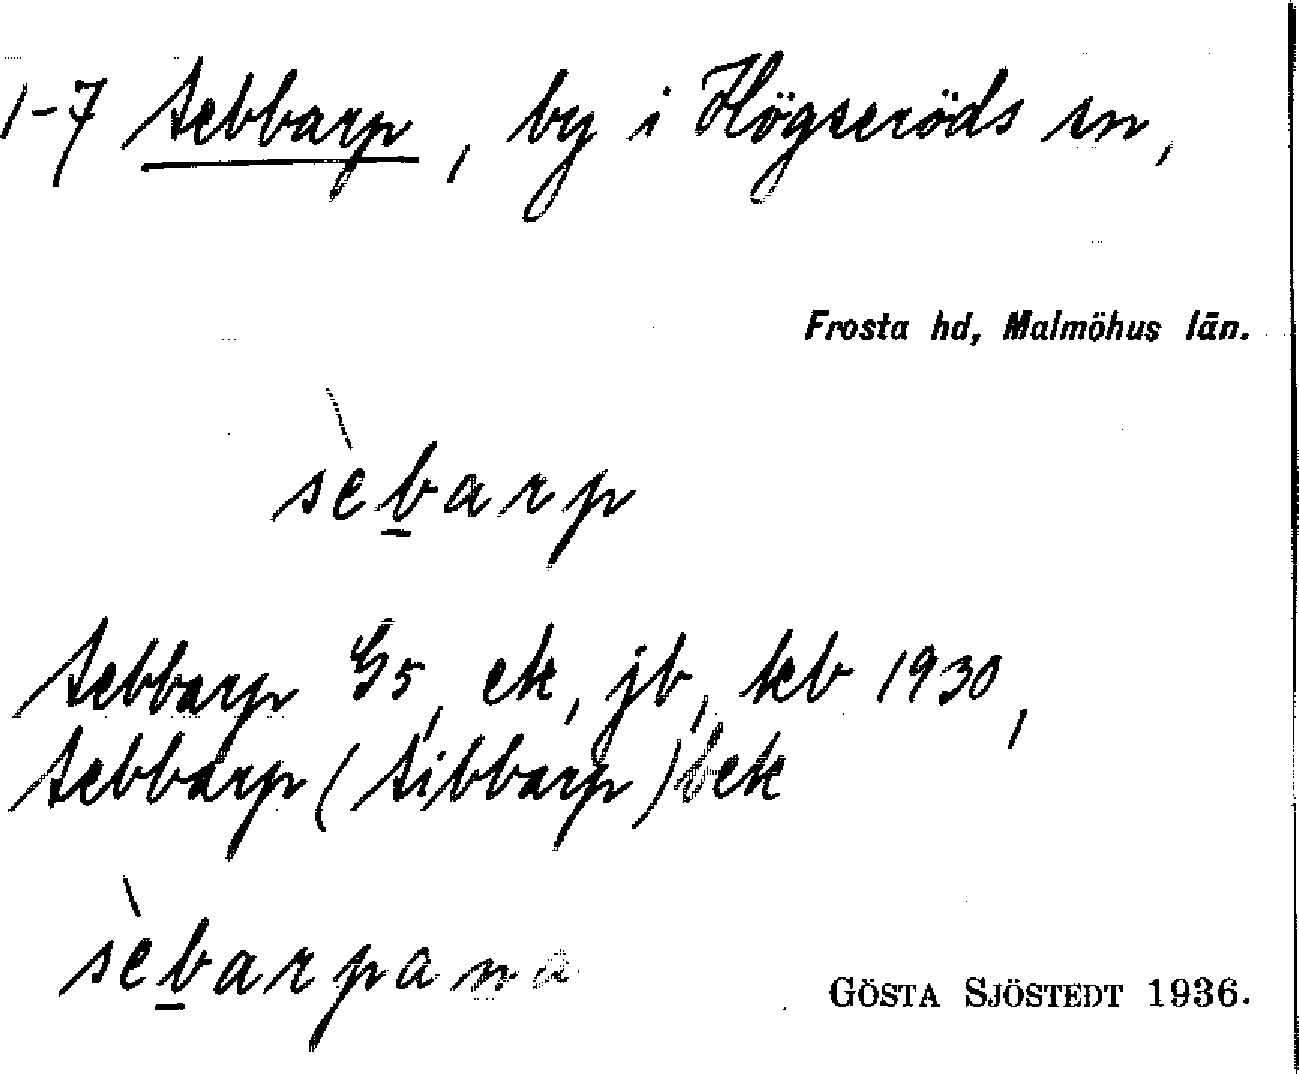 1-7 Sebbarp, by i Högseröds sn,
Frosta hd, Malmöhus län.
sèb̲arp
Sebbarp G5, ek, jb, kb 1930,
Sebbarp (Sibbarp) bek
sèb̲arpana
GÖSTA SJÖSTEDT 1936.